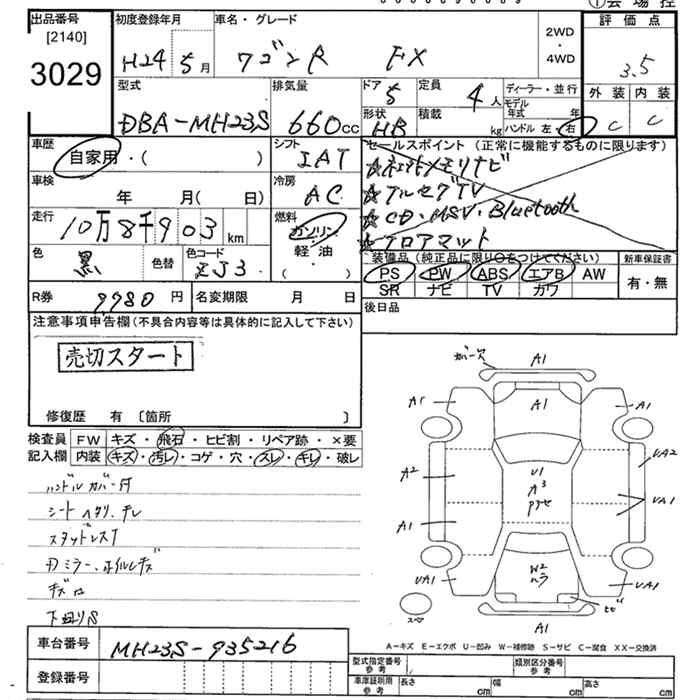 出品番号
[2140]
3029
初度登録年月
H24 5月
車名・グレード
ワゴンR FX
2WD
・
4WD
評価点
3.5
外装 内装
C C
型式
DBA-MH23S
排気量
660cc
ドア
5
定員
4人
形状
HB
積載
kg
ディーラー・並行
モデル
年式 年
ハンドル 左・右
車歴
自家用・( )
シフト
IAT
車検
年 月( 日)
冷房
AC
走行
10万8千903km
燃料
ガソリン
軽油
・( )
色
黒
色替
色コード
ZJ3
R券
9,980円
名変期限 月 日
セールスポイント(正常に機能するものに限ります)
フルセグTV
CD・MSV・Bluetooth
☆フロアマット
装備品(純正品に限り○をつけてください)
PS PW ABS エアB AW
SR ナビ TV カワ
新車保証書
有・無
後日品
注意事項申告欄(不具合内容等は具体的に記入して下さい)
売切スタート
修復歴 有〔箇所 〕
検査員
記入欄
FW キズ・飛石・ヒビ割・リペア跡・×要
内装 キズ・汚レ・コゲ・穴・スレ・キレ・破レ
ハンドルカバー付
シートヘタリ、キレ
スタッドレスT
Dミラー、ホイルキズ
下回りS
A1
A1
A1
A1
A2
UA2
U1
A3
A1
UA1
W2
UA1
UA1
A1
スペア
A-キズ E-エクボ U-凹み W-補修跡 S-サビ C-腐食 XX-交換済
車台番号
MH23S-935216
登録番号
型式指定番号
参考
類別区分番号
参考
車庫証明用
参考
長さ cm 幅 cm 高さ cm